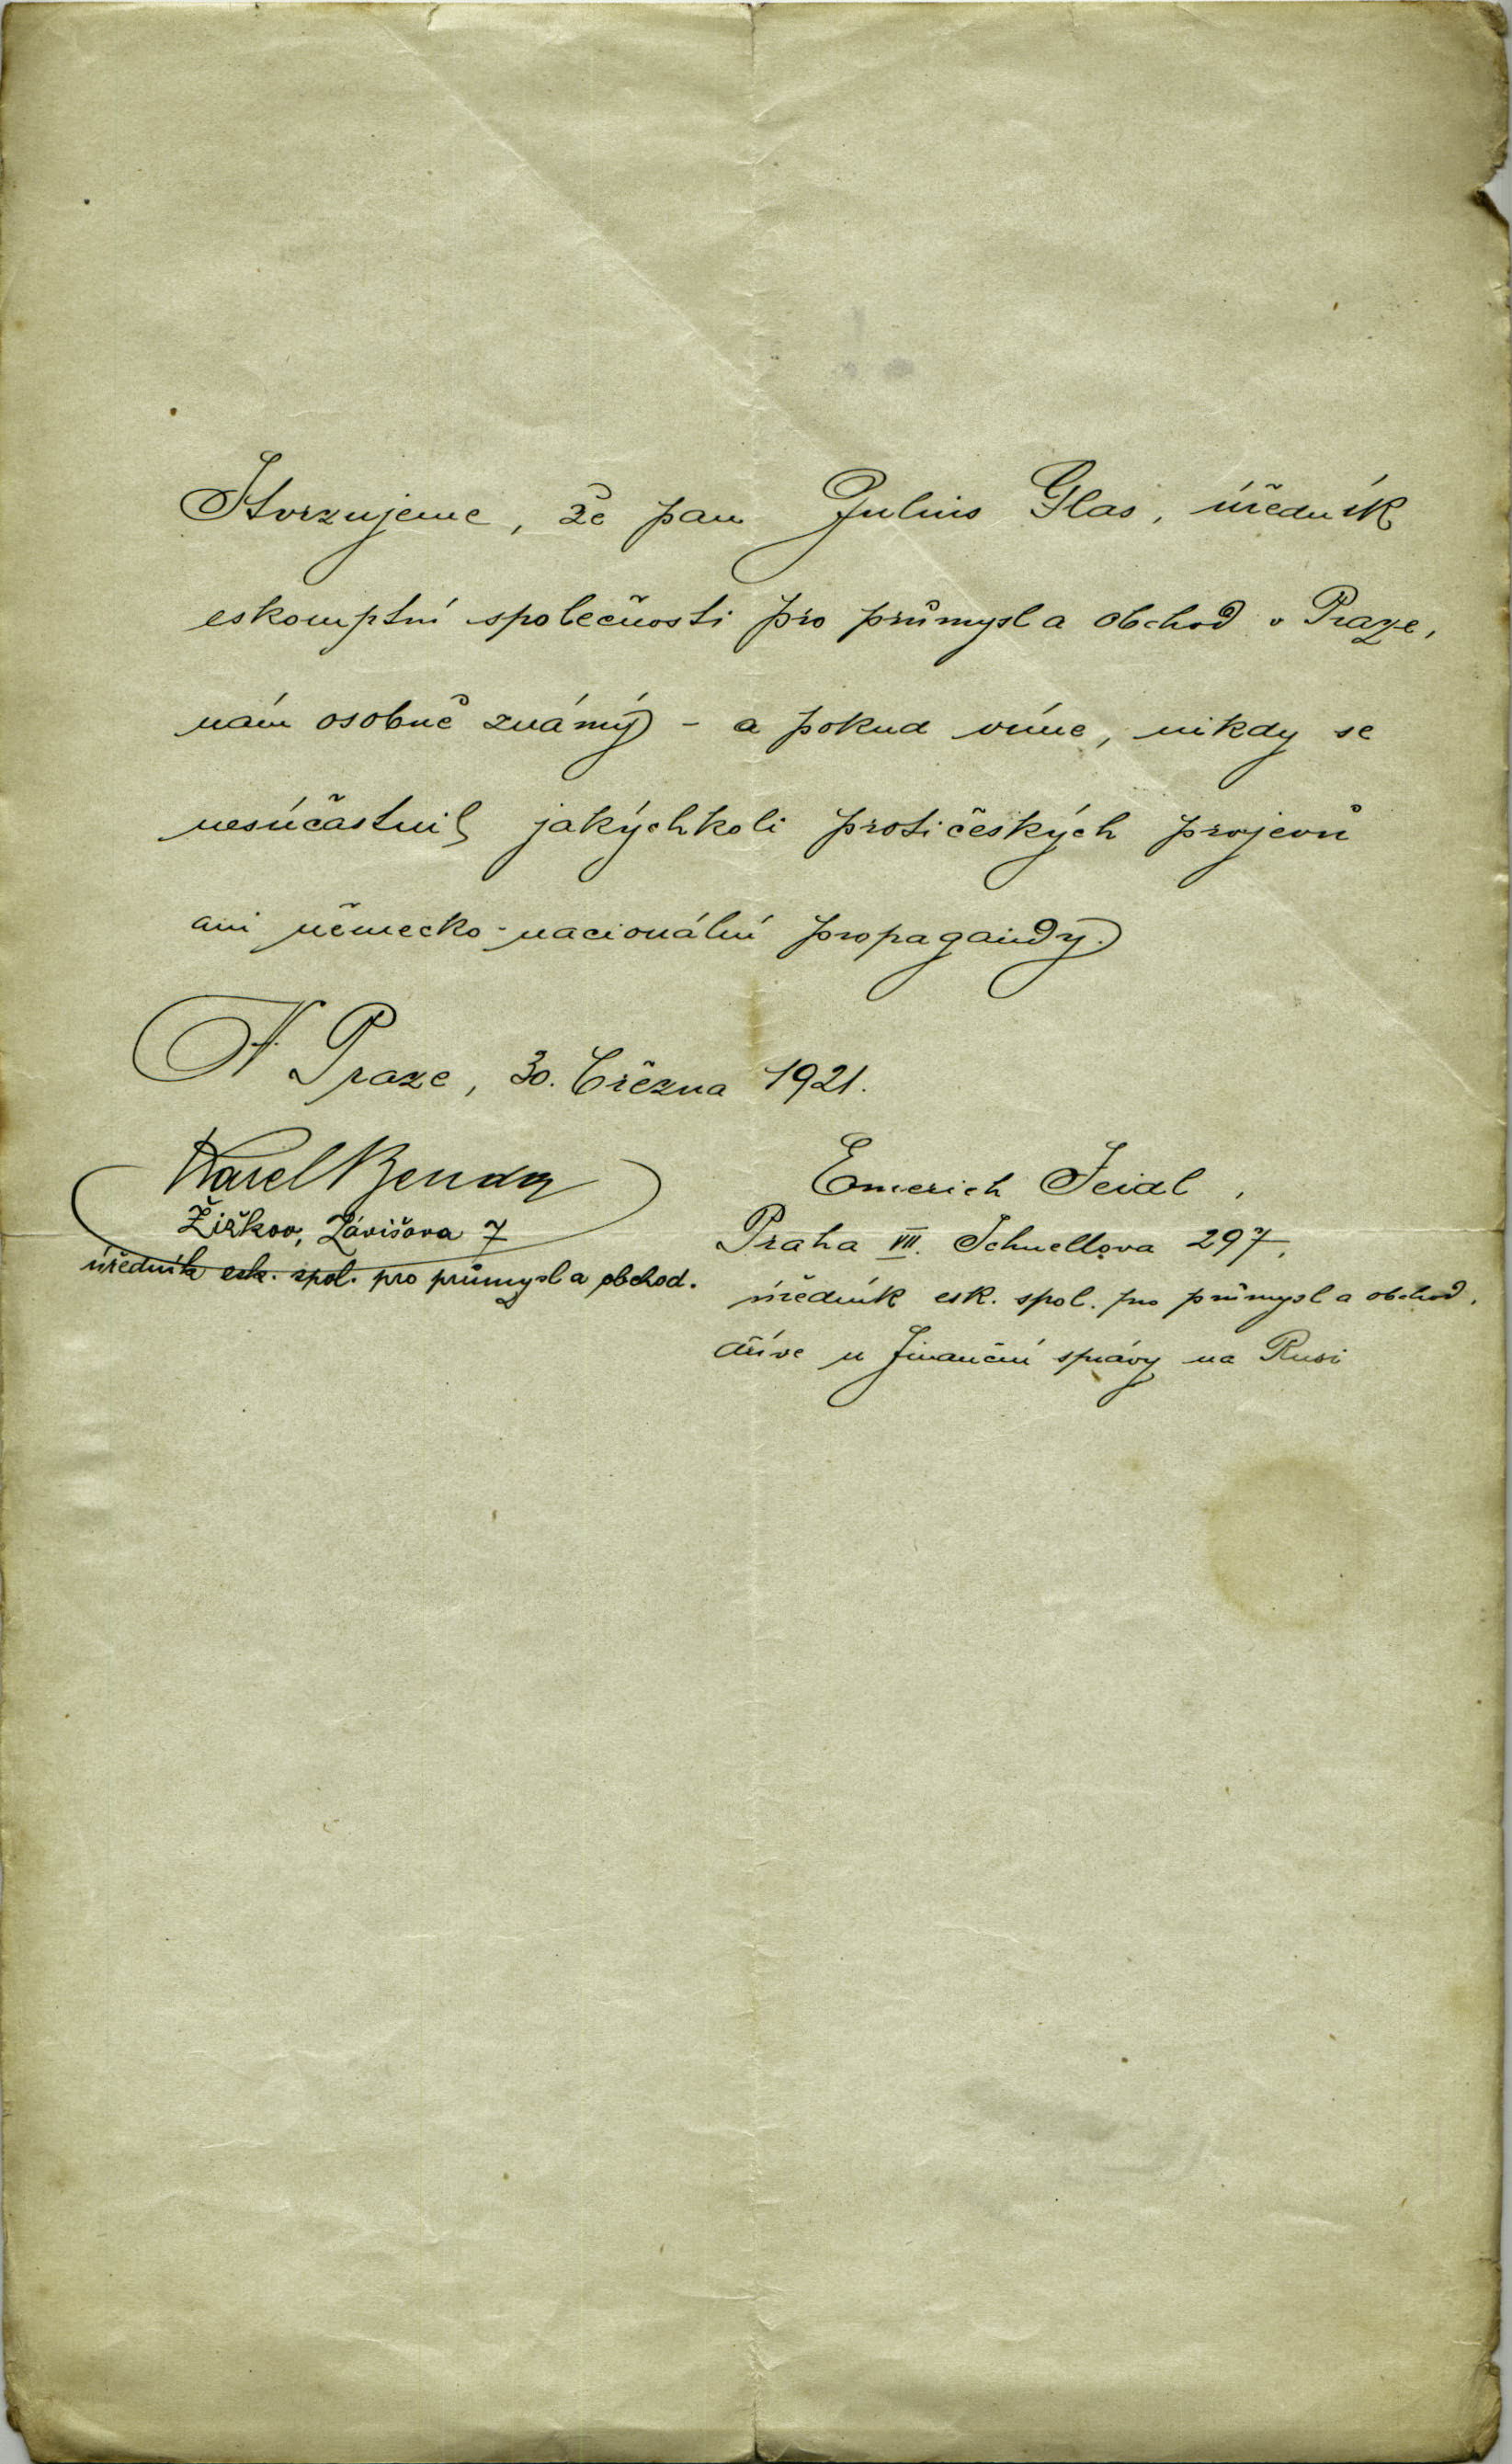 Stvrzujeme, že pan Julius Glas, úředník
eskomptní společnosti pro průmysl a obchod v Praze,
nám osobně známý - a pokud víme, nikdy se
nesúčastnil jakýchkoli protičeských projevů
ani německo-nacionální propagandy.
V Praze, 30. března 1921.
Karel Benda
Žižkov, Závišova 7
úředník esk. spol. pro průmysl a obchod.
Emerich Seidl,
Praha VII. Schnellova 297,
úředník esk. spol. pro průmysl a obchod,
dříve u finanční správy na Rusi